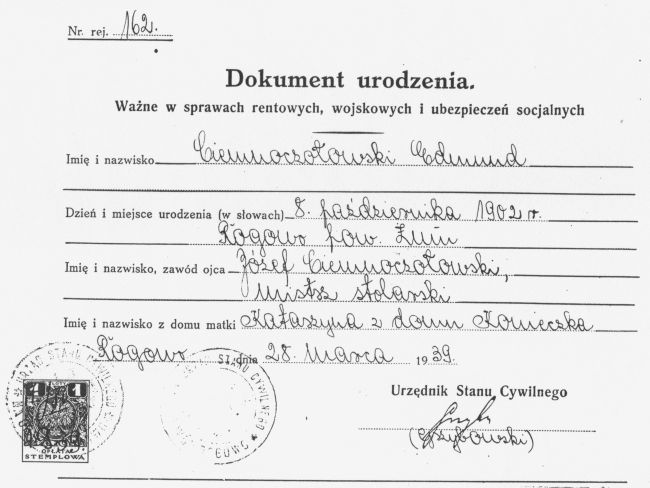 Nr. rej. 162.
Dokument urodzenia.
Ważne w sprawach rentowych, wojskowych i ubezpieczeń socjalnych
Imię i nazwisko Ciemnoczołowski Edmund
Dzień i miejsce urodzenia (w słowach) 8. października 1902 r.
Rogowo pow. Żnin
Imię i nazwisko, zawód ojca Józef Ciemnoczołowski,
mistrz stolarski
Imię i nazwisko z domu matki Katarzyna z domu Konieczka
Rogowo, dnia 28 marca 1939.
URZĄD STANU CYWILNEGO
STANU CYWILNEGO
ROGOWO
Urzędnik Stanu Cywilnego
1 1
OPŁATA
STEMPLOWA
(Grzybowski)